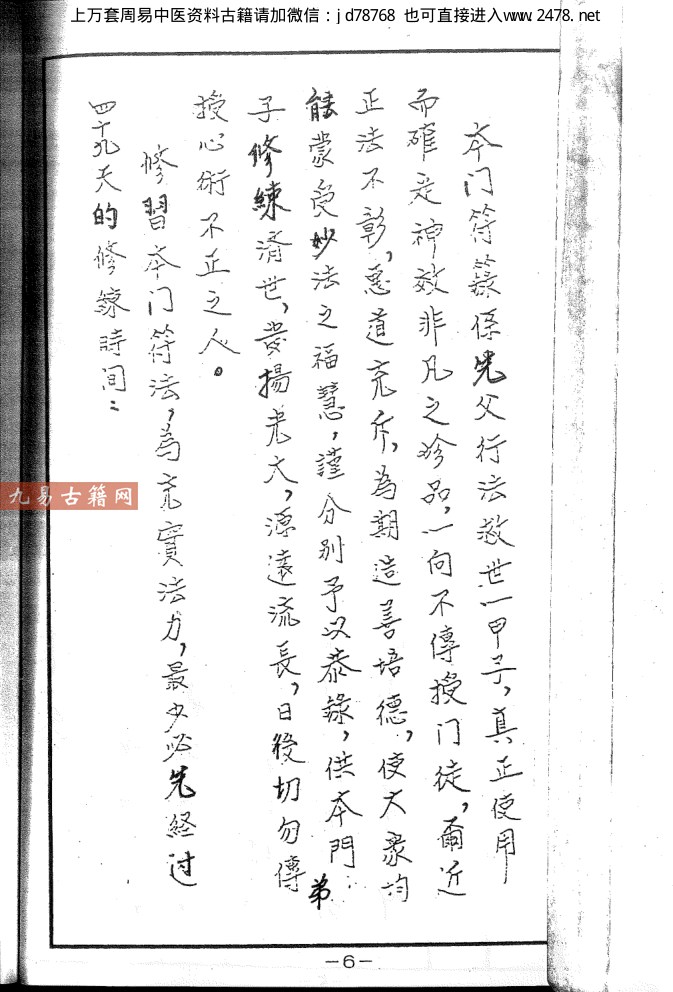 上万套周易中医资料古籍请加微信：jd78768 也可直接进入www.2478.net
本门符籙係先父行法救世一甲子，真正使用
而確是神效非凡之珍品，一向不傳授门徒，爾近
正法不彰，惡道充斥，為期造善培德，使大衆均
能蒙受妙法之福慧，謹分别予以恭錄，供本門弟
子修練濟世，發揚光大，源遠流長，日後切勿傳
授心術不正之人。
修習本门符法，為充實法力，最少必先経过
四十九天的修鍊時间：
九易古籍网
-6-